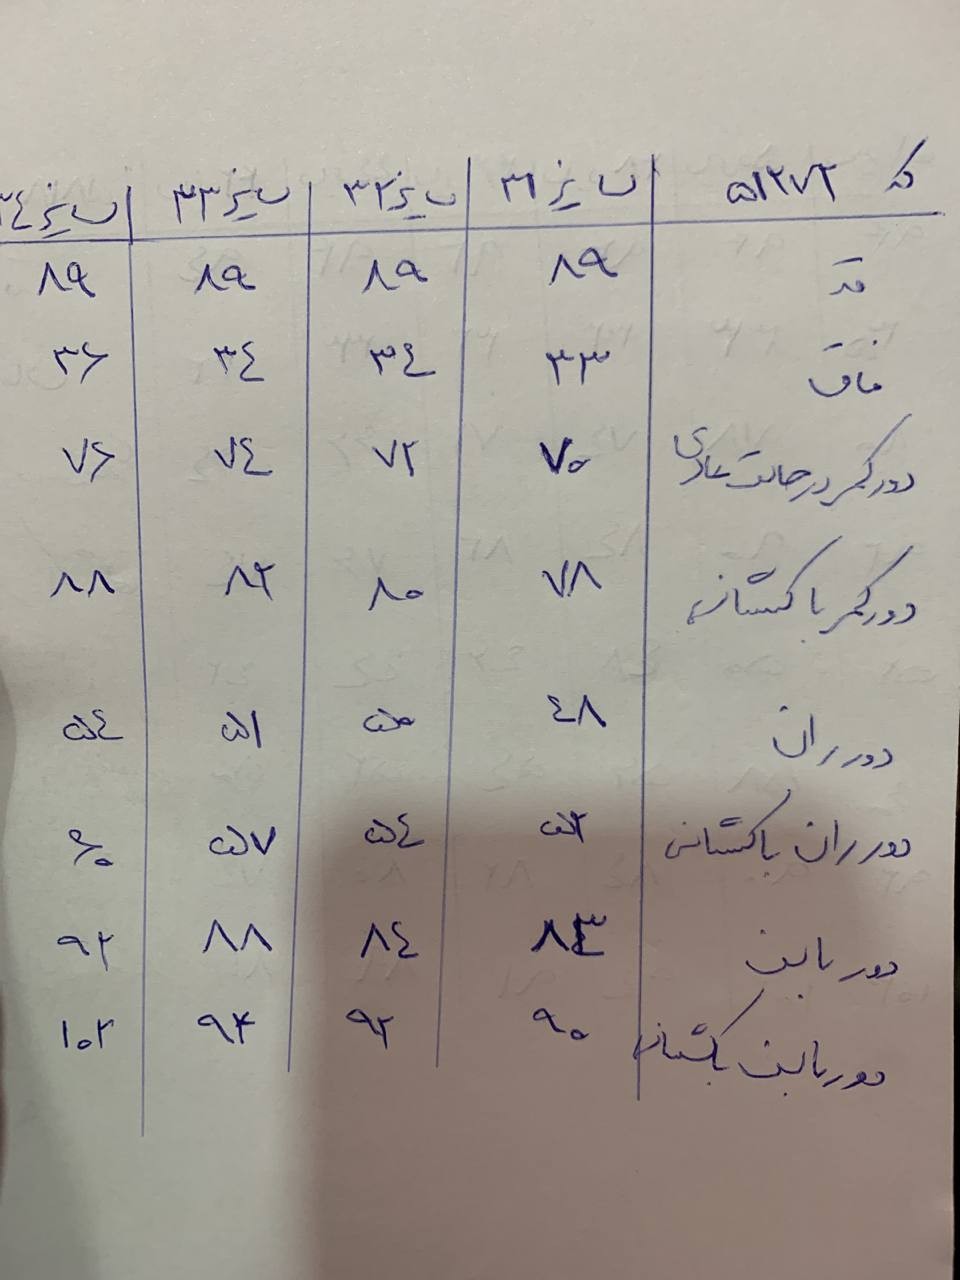 کد ۵۱۲۷۳ سایز ۳۱ سایز ۳۲ سایز ۳۳ سایز ۳۴
قد ۸۹ ۸۹ ۸۹ ۸۹
فاق ۳۳ ۳۴ ۳۴ ۳۶
دور کمر در حالت عادی ۷۰ ۷۲ ۷۴ ۷۶
دور کمر با کشسانی ۷۸ ۸۰ ۸۲ ۸۸
دور ران ۴۸ ۵۰ ۵۱ ۵۴
دور ران با کشسانی ۵۲ ۵۴ ۵۷ ۶۰
دور باسن ۸۳ ۸۴ ۸۸ ۹۲
دور باسن با کشسانی ۹۰ ۹۲ ۹۴ ۱۰۲